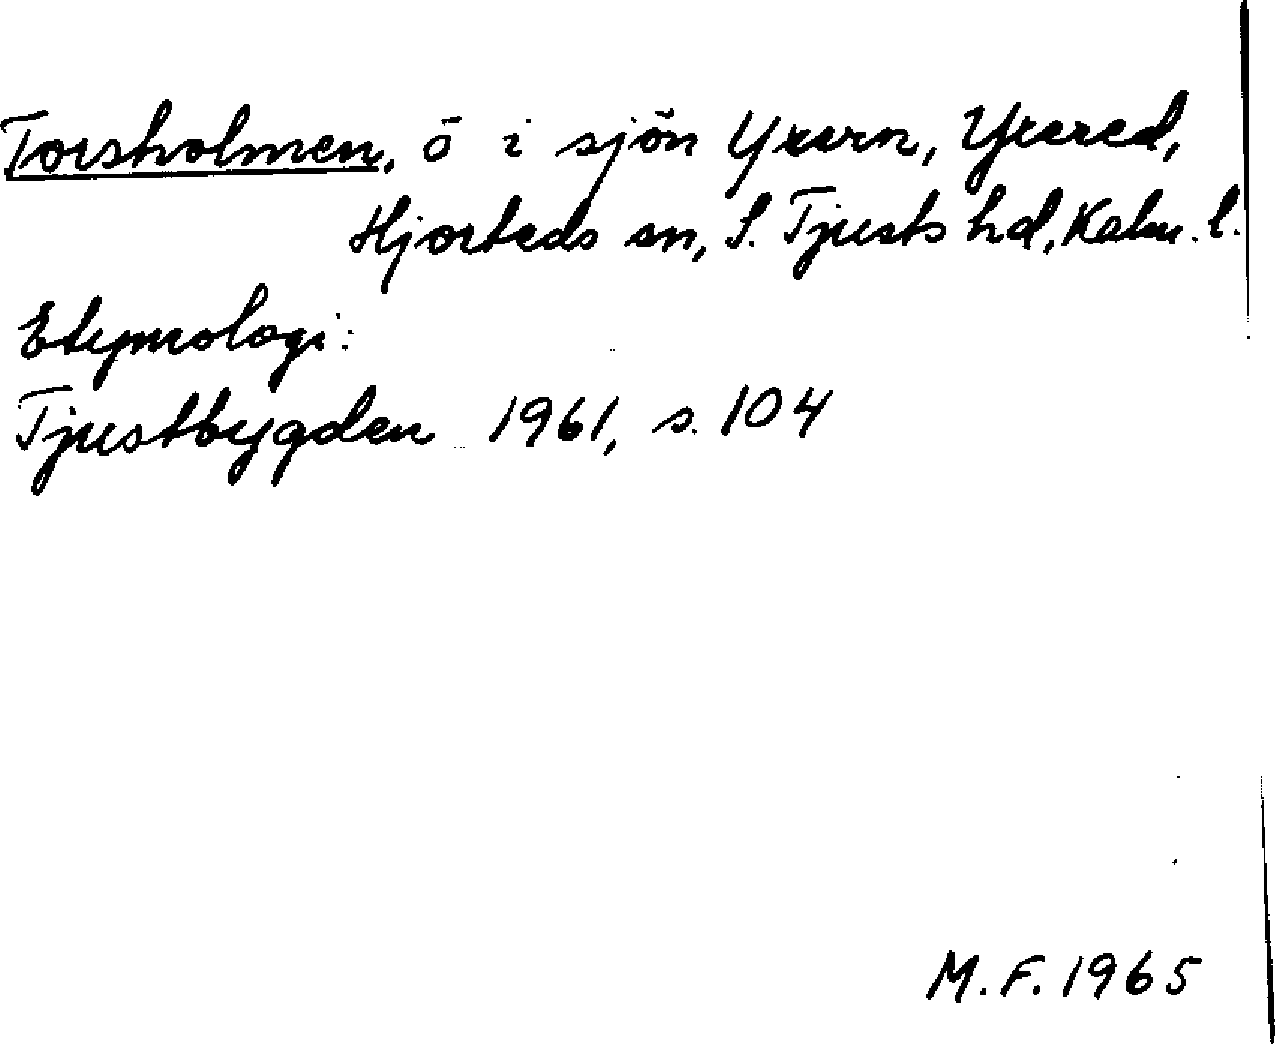 Torsholmen, ö i sjön Yxern, Yxered,
Hjorteds sn, S. Tjusts hd, Kalm. l.
Etymologi:
Tjustbygden 1961, s. 104
M.F. 1965